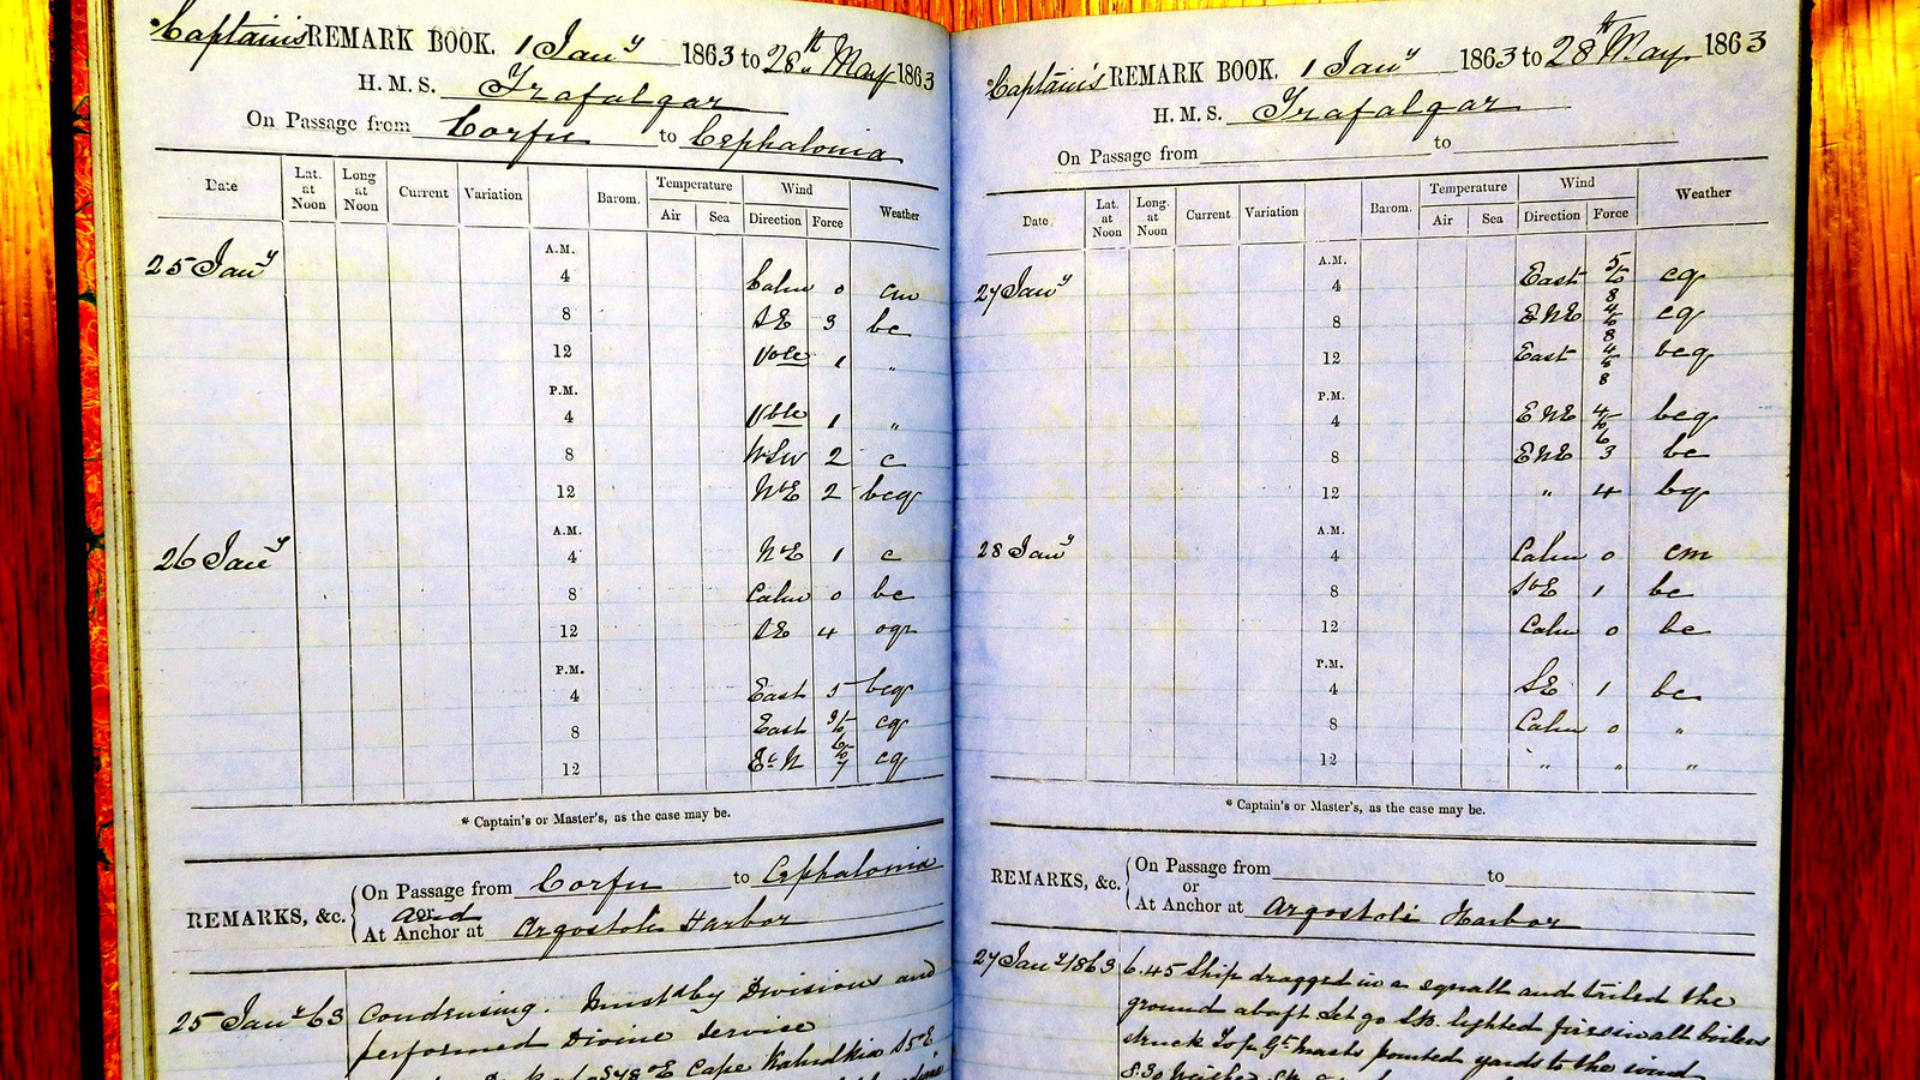 *Captain's REMARK BOOK. 1 Jany 1863 to 28th May 1863
H. M. S. Trafalgar
On Passage from Corfu to Cephalonia
Date Lat. at Noon Long at Noon Current Variation Barom. Temperature Air Sea Wind Direction Force Weather
25 Jany
A.M.
4 Calm 0 cm
8 SE 3 bc
12 Vble 1 „
P.M.
4 Vble 1 „
8 WSW 2 c
12 NE 2 bcq
26 Jany
A.M.
4 NE 1 c
8 Calm 0 bc
12 SE 4 ogr
P.M.
4 East 5 bcq
8 East cq
12 EbN cq
* Captain's or Master's, as the case may be.
REMARKS, &c. On Passage from Corfu to Cephalonia
or and
At Anchor at Argostoli Harbor
25 Jany 63 Condensing. Mustd by Divisions and
performed Divine Service
S48°E Cape S5°E
*Captain's REMARK BOOK. 1 Jany 1863 to 28th May 1863
H. M. S. Trafalgar
On Passage from to
Date Lat. at Noon Long. at Noon Current Variation Barom. Temperature Air Sea Wind Direction Force Weather
27 Jany
A.M.
4 East 5 to 8 cq
8 ENE 4 to 8 cq
12 East 4 to 8 bcq
P.M.
4 ENE 4 to 6 bcq
8 ENE 3 bc
12 „ 4 bq
28 Jany
A.M.
4 Calm 0 cm
8 SbE 1 bc
12 Calm 0 bc
P.M.
4 SE 1 bc
8 Calm 0 „
12 „ „ „
* Captain's or Master's, as the case may be.
REMARKS, &c. On Passage from to
or
At Anchor at Argostoli Harbor
27 Jany 1863 6.45 Ship dragged in a squall and tailed the
ground abaft let go lighted fires in all boilers
struck Top Gt masts pointed yards to the wind
8.30